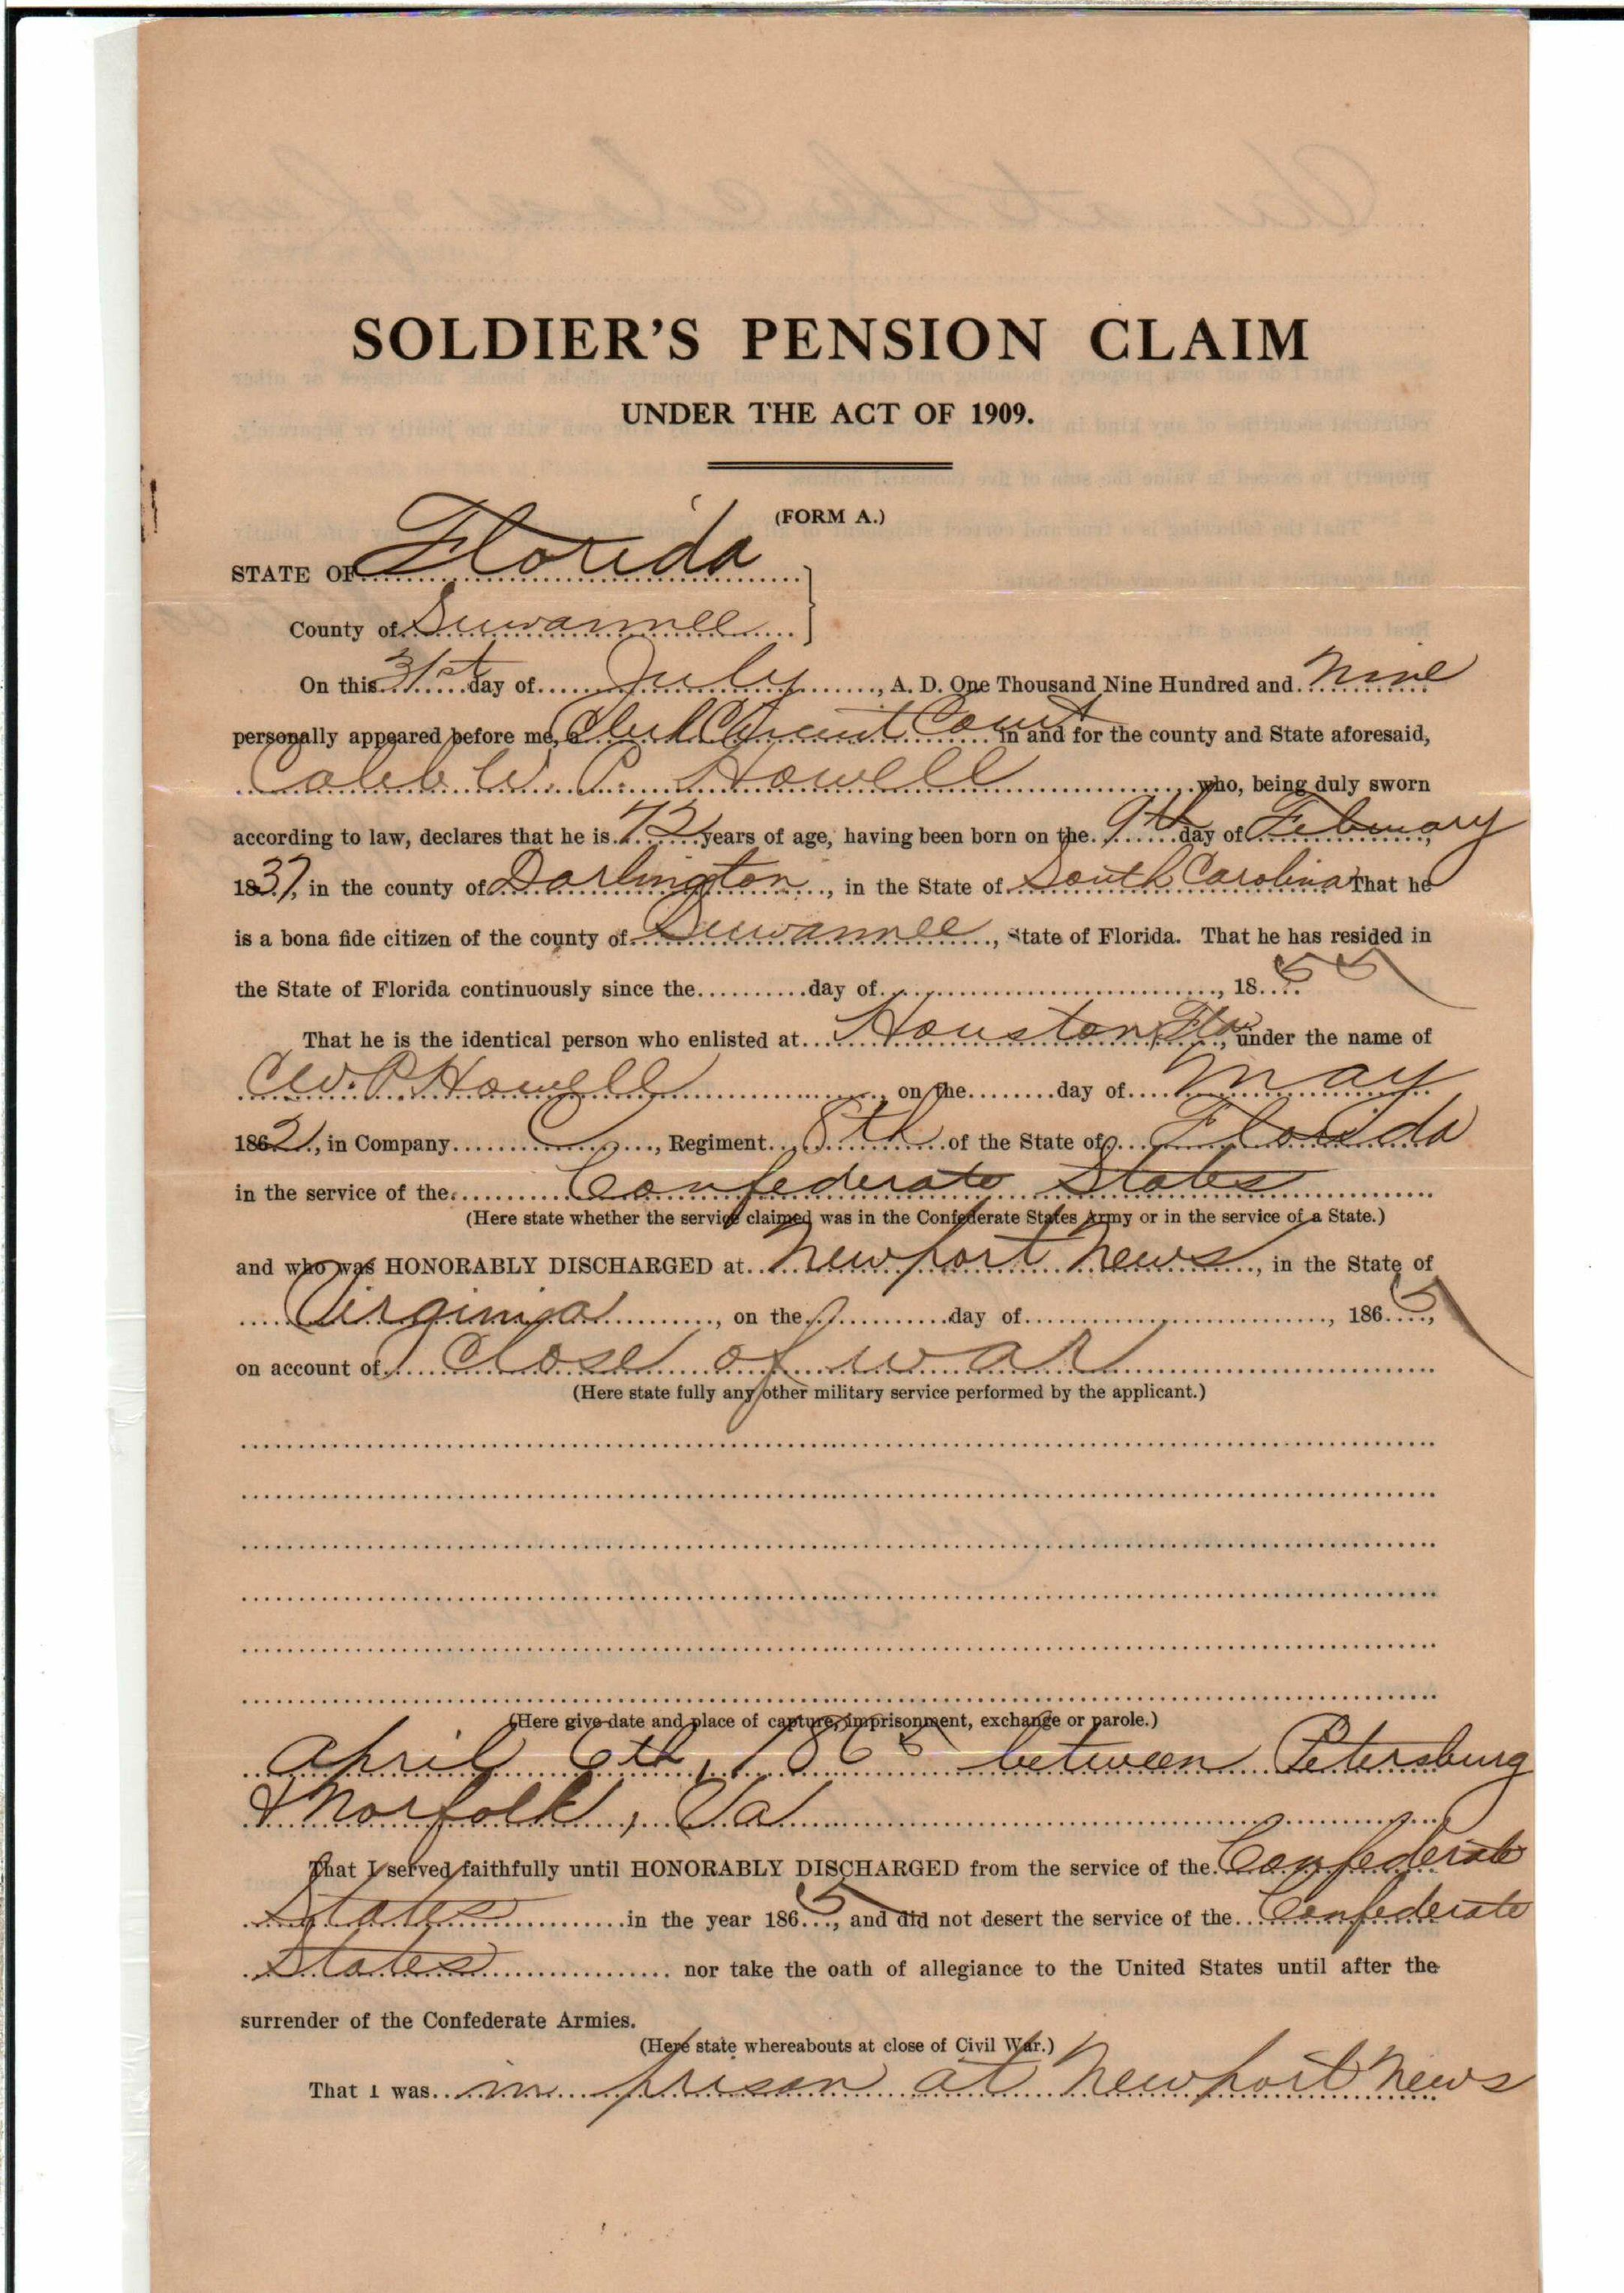 SOLDIER'S PENSION CLAIM
UNDER THE ACT OF 1909.
(FORM A.)
STATE OF Florida
County of Suwannee
On this 31st day of July, A. D. One Thousand Nine Hundred and Nine
personally appeared before me, a Clerk Circuit Court in and for the county and State aforesaid,
Caleb W. P. Howell who, being duly sworn
according to law, declares that he is 72 years of age, having been born on the 9th day of February,
1837, in the county of Darlington, in the State of South Carolina That he
is a bona fide citizen of the county of Suwannee, State of Florida. That he has resided in
the State of Florida continuously since the..........day of..............................., 1855
That he is the identical person who enlisted at Houston, Fla., under the name of
C.W. P. Howell, on the.........day of May
1862, in Company C, Regiment 8th of the State of Florida
in the service of the Confederate States
(Here state whether the service claimed was in the Confederate States Army or in the service of a State.)
and who was HONORABLY DISCHARGED at Newport News, in the State of
Virginia, on the..........day of..............................., 1865,
on account of Close of war
(Here state fully any other military service performed by the applicant.)
(Here give date and place of capture, imprisonment, exchange or parole.)
April 6th, 1865 between Petersburg
& Norfolk, Va
That I served faithfully until HONORABLY DISCHARGED from the service of the Confederate
States in the year 1865, and did not desert the service of the Confederate
States nor take the oath of allegiance to the United States until after the
surrender of the Confederate Armies.
(Here state whereabouts at close of Civil War.)
That I was in prison at Newport News